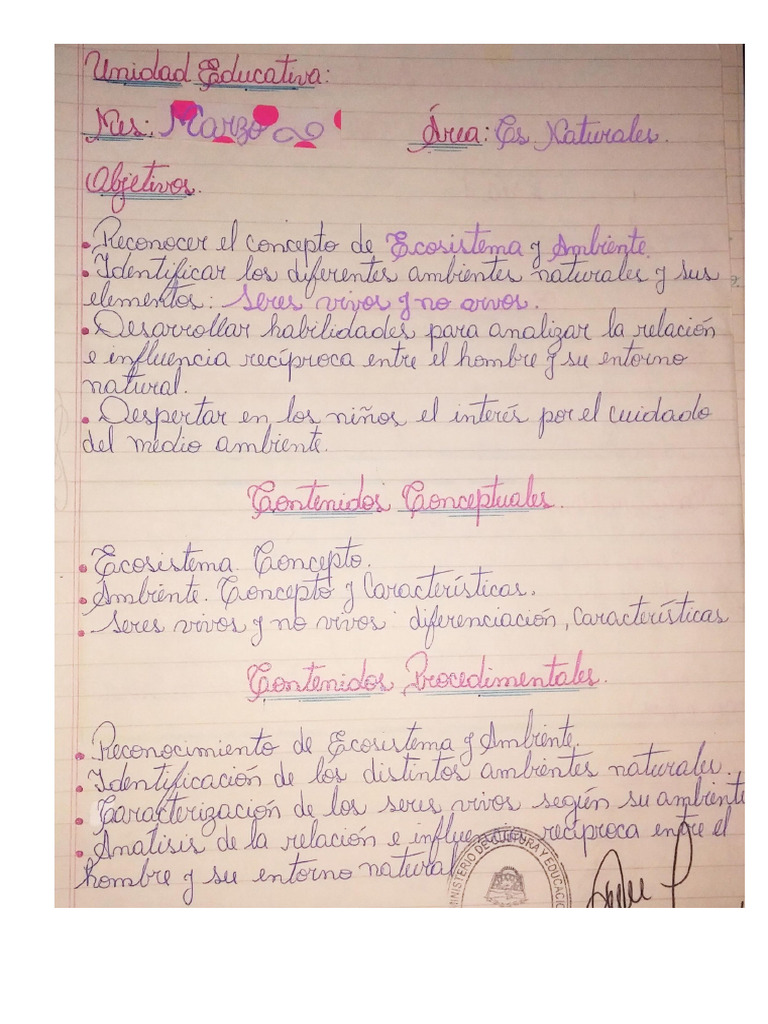 Unidad Educativa:
Mes: Marzo Área: Cs Naturales.
Objetivos.
• Reconocer el concepto de Ecosistema y Ambiente.
• Identificar los diferentes ambientes naturales y sus
elementos: seres vivos y no vivos.
• Desarrollar habilidades para analizar la relación
e influencia recíproca entre el hombre y su entorno
natural.
• Despertar en los niños el interés por el cuidado
del medio ambiente.
Contenidos Conceptuales.
• Ecosistema. Concepto.
• Ambiente. Concepto y Características.
• Seres vivos y no vivos: diferenciación, características
Contenidos Procedimentales.
• Reconocimiento de Ecosistema y Ambiente.
• Identificación de los distintos ambientes naturales.
• Caracterización de los seres vivos según su ambiente
• Analisis de la relación e influencia recíproca entre el
hombre y su entorno natural
MINISTERIO DE CULTURA Y EDUCACIO